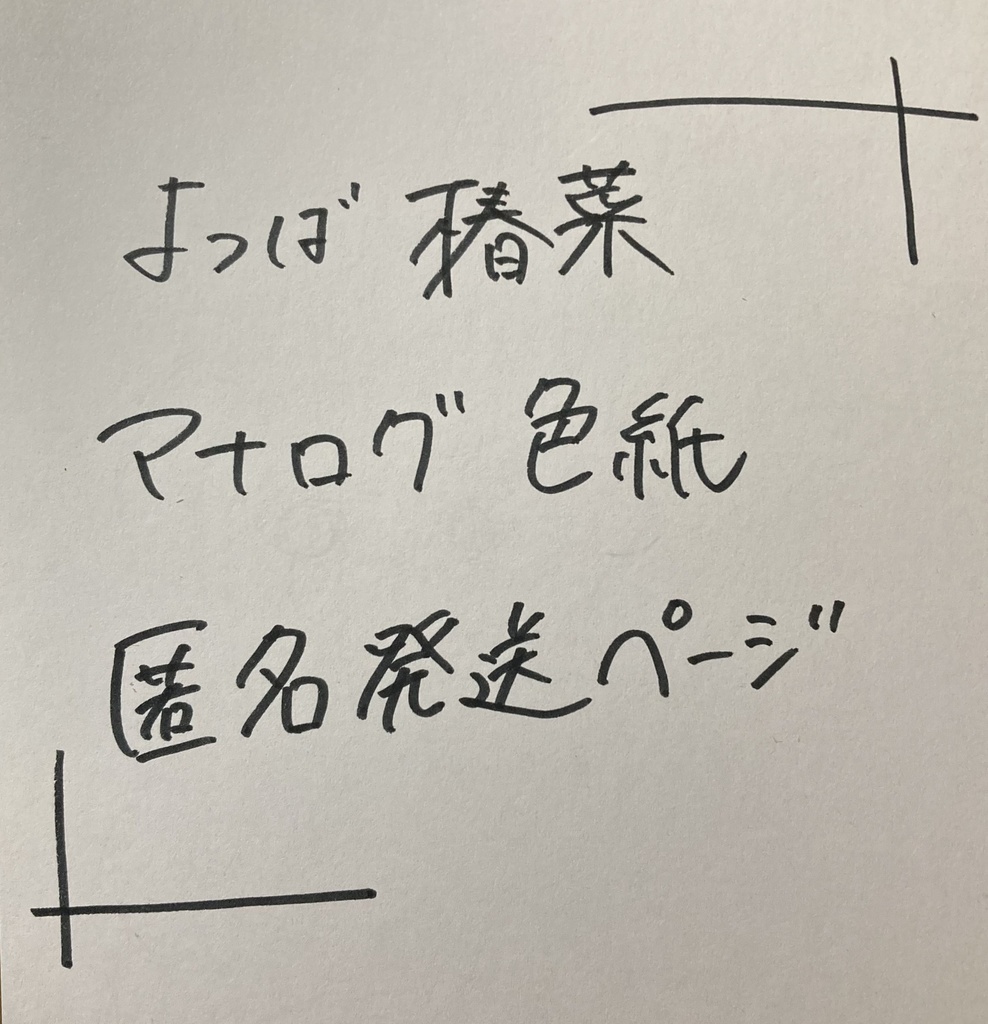 よつば 椿菜
マナログ 色紙
匿名発送ページ